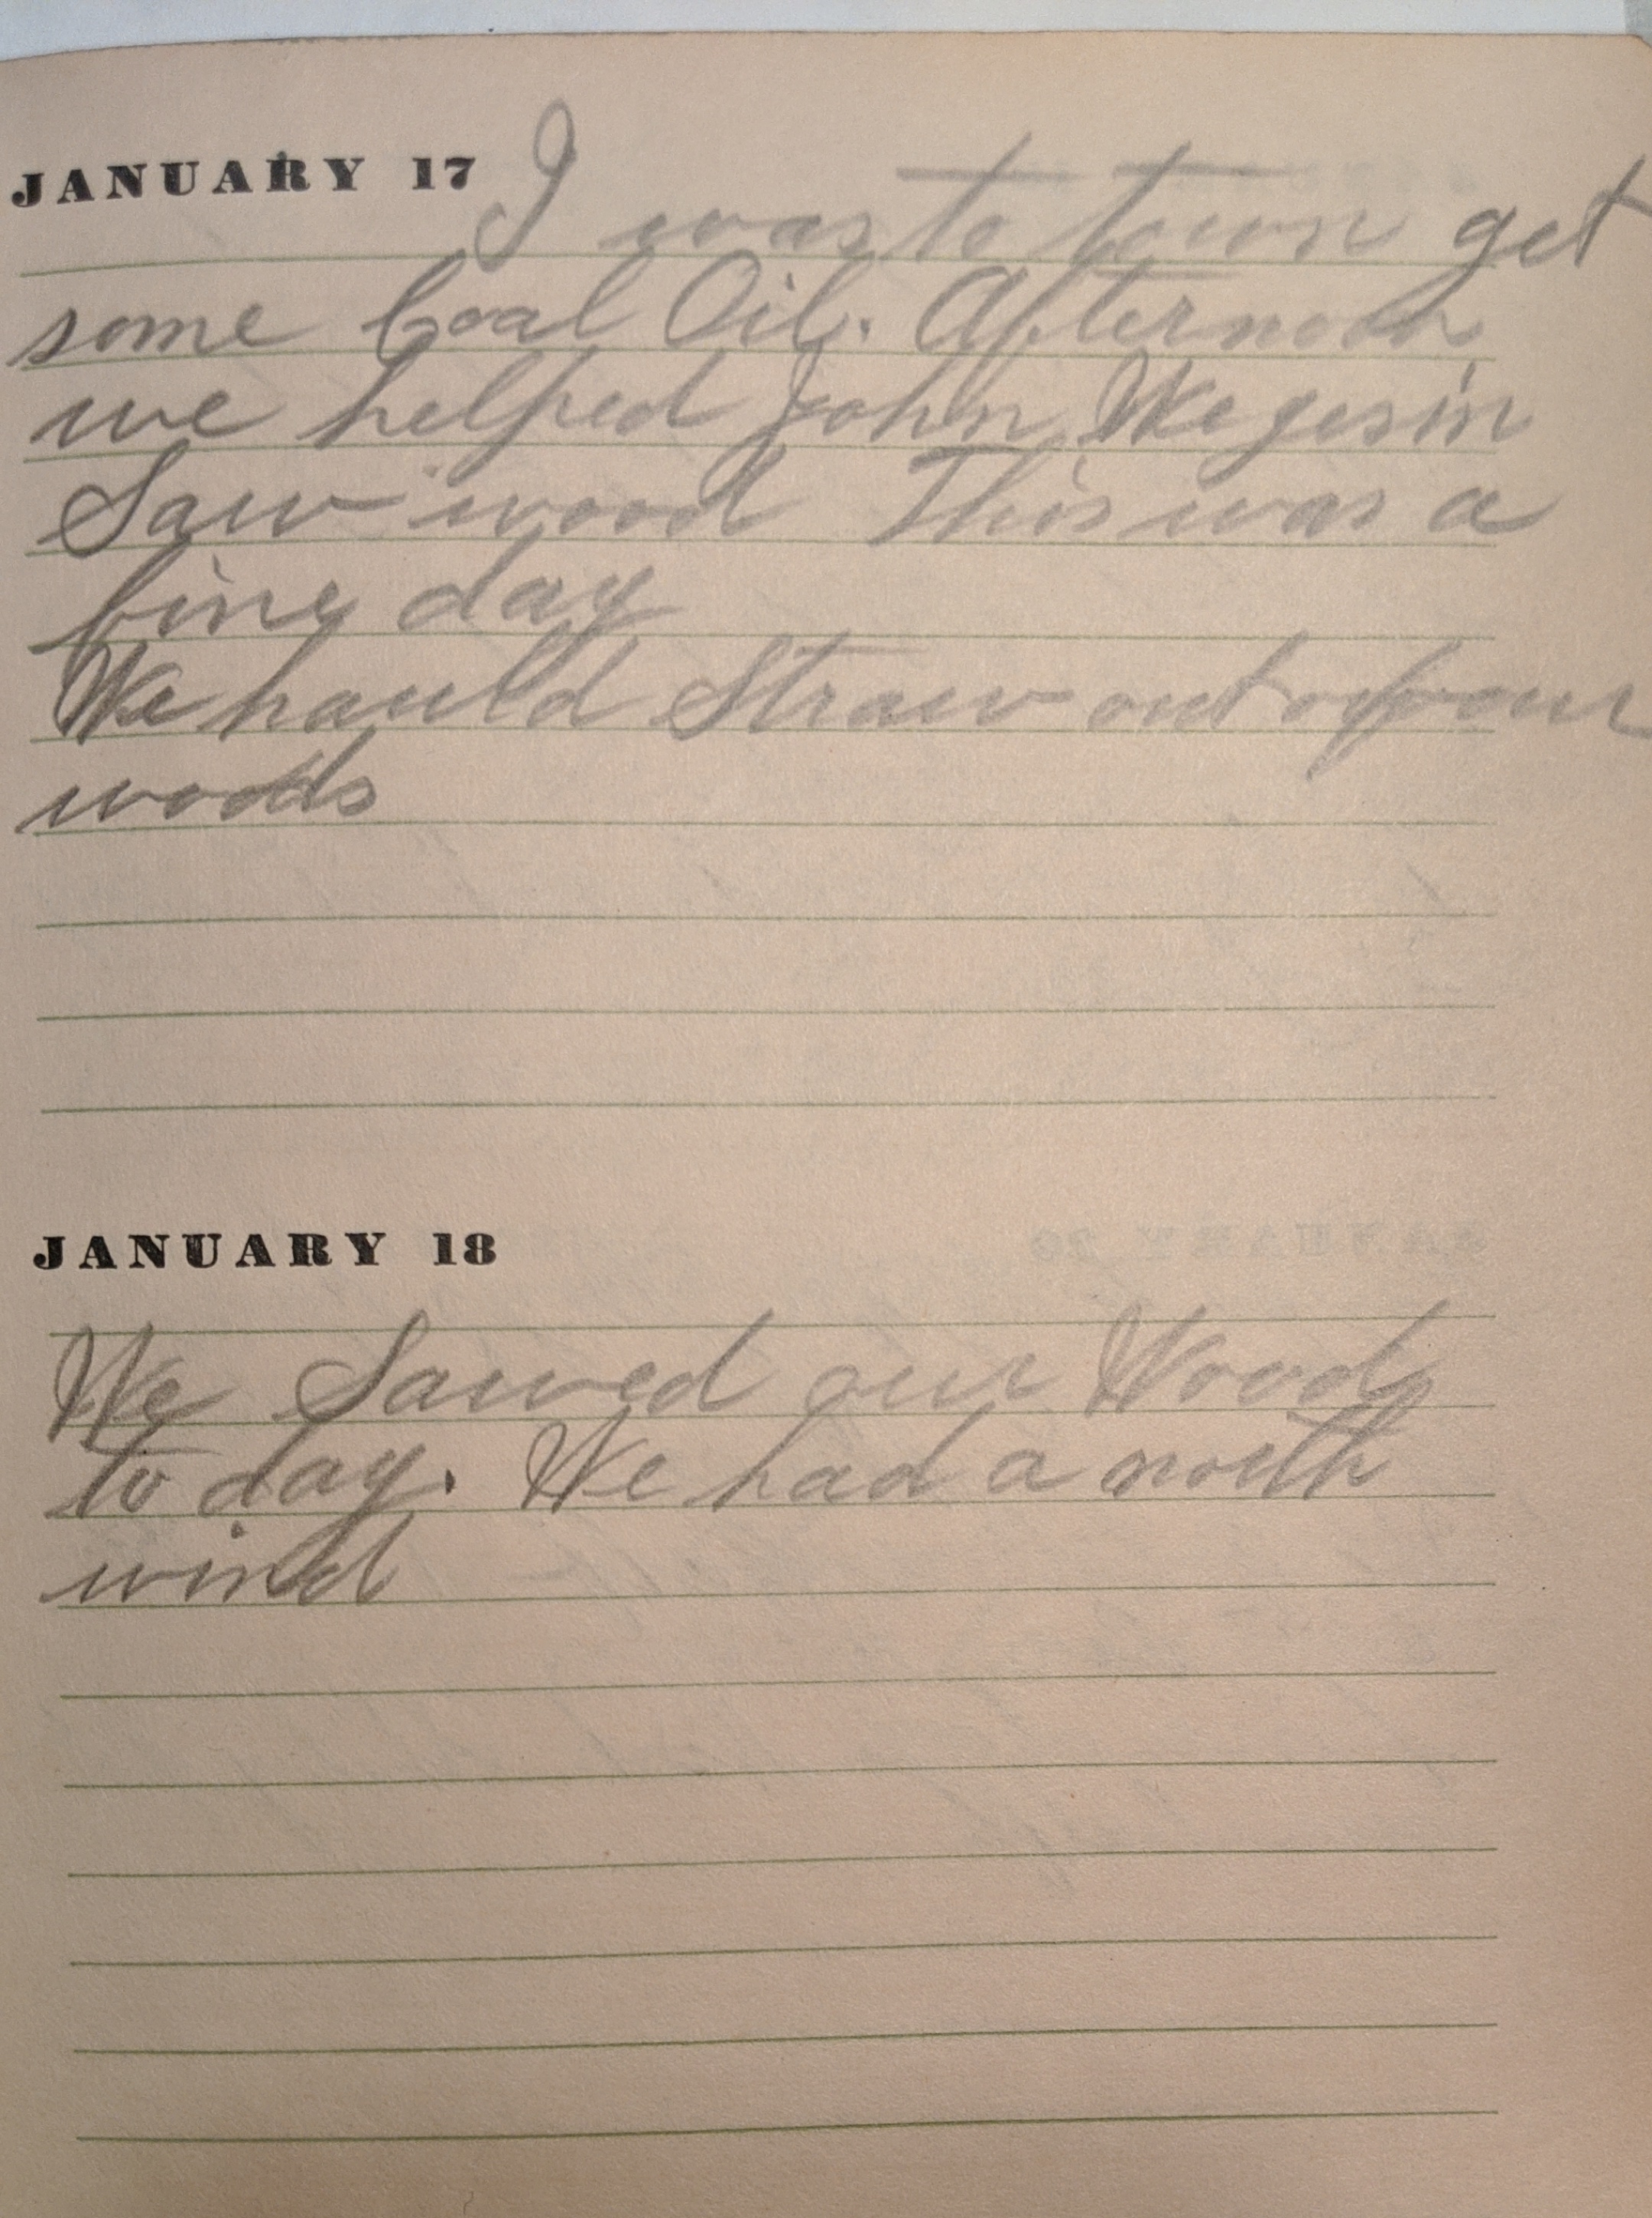 JANUARY 17 I was to town get
some Coal Oil. Afternoon
we helped John Wegesin
Saw wood This was a
fine day
We hauld Straw out of our
woods
JANUARY 18
We Sawed our Wood
to day. We had a north
wind